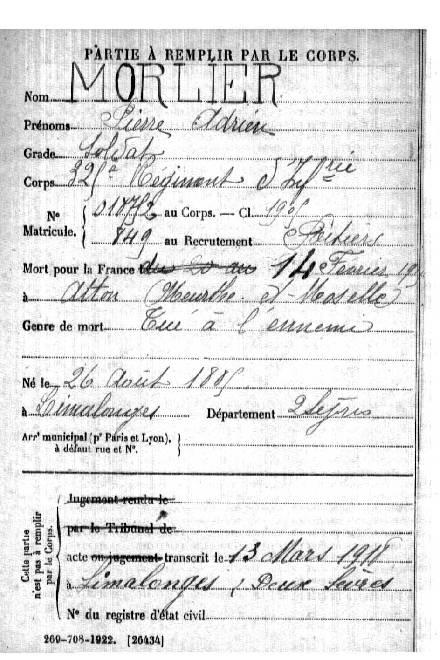 PARTIE À REMPLIR PAR LE CORPS.
Nom MORLIER
Prénoms Pierre Adrien
Grade Soldat
Corps 325e Régiment d'Infrie
N° Matricule. { 01872 au Corps. — Cl. 1905
849 au Recrutement Poitiers
Mort pour la France du 20 au 14 Février
à Atton (Meurthe-et-Moselle)
Genre de mort Tué à l'ennemi
Né le 26 Août 1885
à Limalonges Département 2 Sèvres
Arrt municipal (pr Paris et Lyon), à défaut rue et N°. }
Cette partie n'est pas à remplir par le Corps. {
Jugement rendu le
par le Tribunal de
acte ou jugement transcrit le 13 Mars 1918
à Limalonges, Deux Sèvres
N° du registre d'état civil
269-708-1922. [26434]